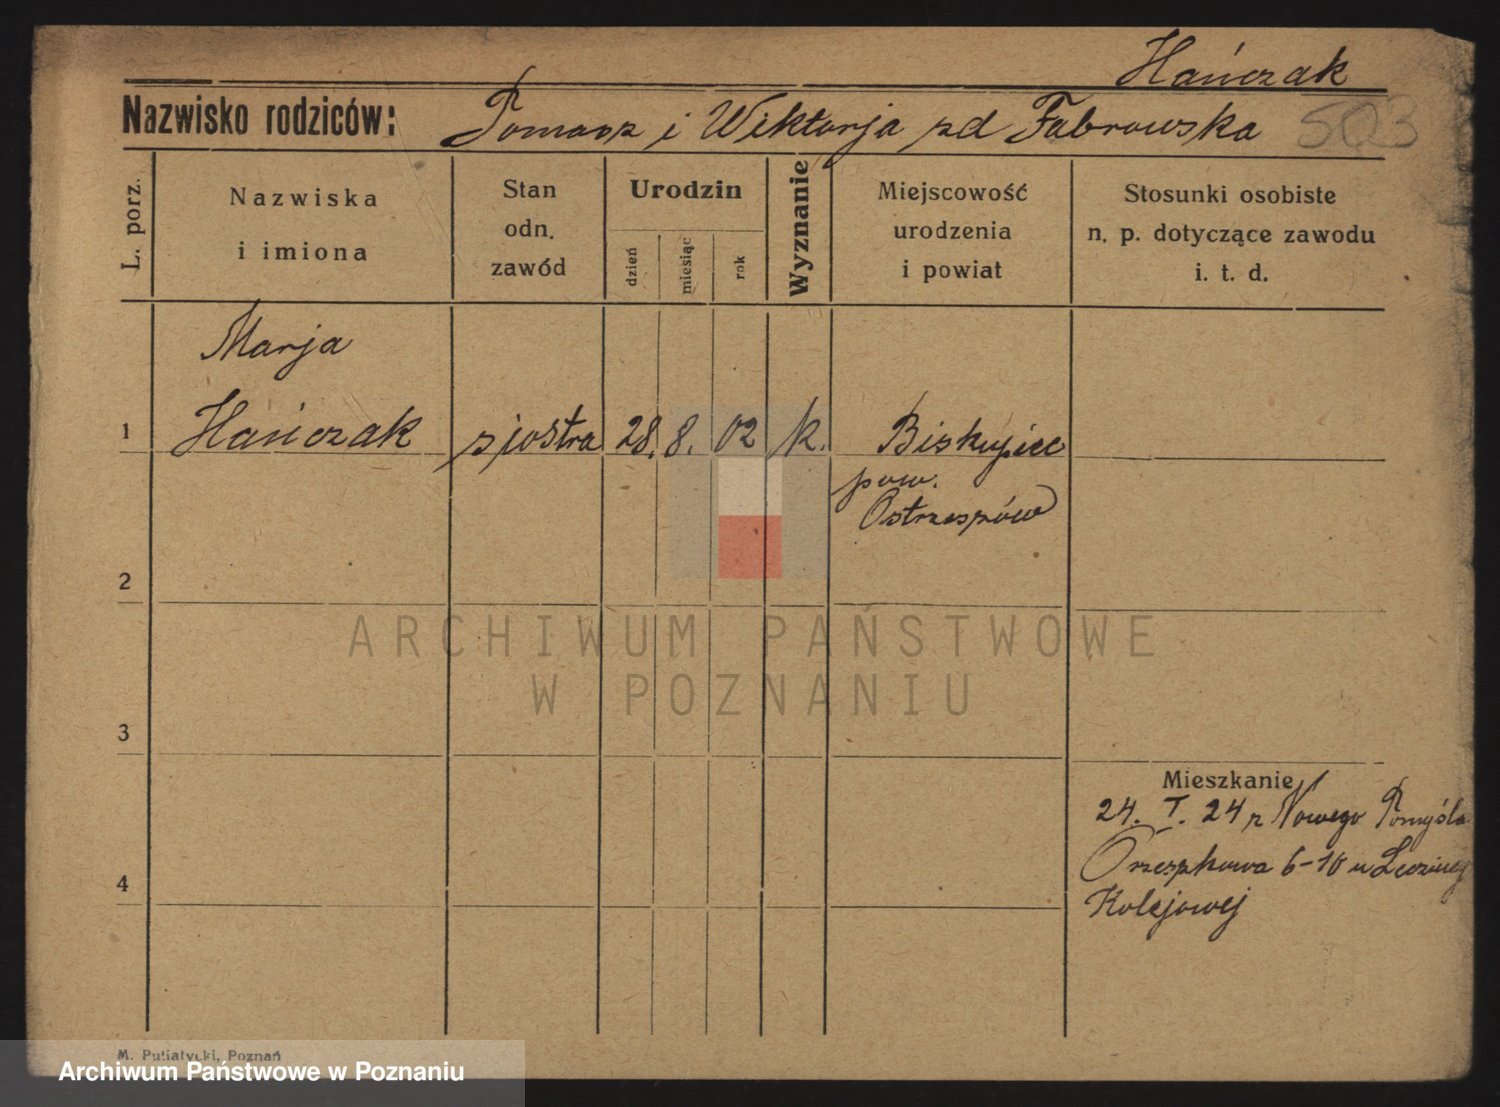 Hańczak
Nazwisko rodziców: Tomasz i Wiktorja zd Fabrowska 503
L. porz.
Nazwiska
i imiona
Stan
odn.
zawód
Urodzin
dzień
miesiąc
rok
Wyznanie
Miejscowość
urodzenia
i powiat
Stosunki osobiste
n. p. dotyczące zawodu
i. t. d.
Marja
1 Hańczak siostra 28. 8. 02 k. Biskupice
pow.
Ostrzeszów
2
ARCHIWUM PAŃSTWOWE
W POZNANIU
3
Mieszkanie
24. I. 24 z Nowego Tomyśla
Orzeszkowa 6-10 u
Kolejowej
4
M. Putiatycki, Poznań
Archiwum Państwowe w Poznaniu